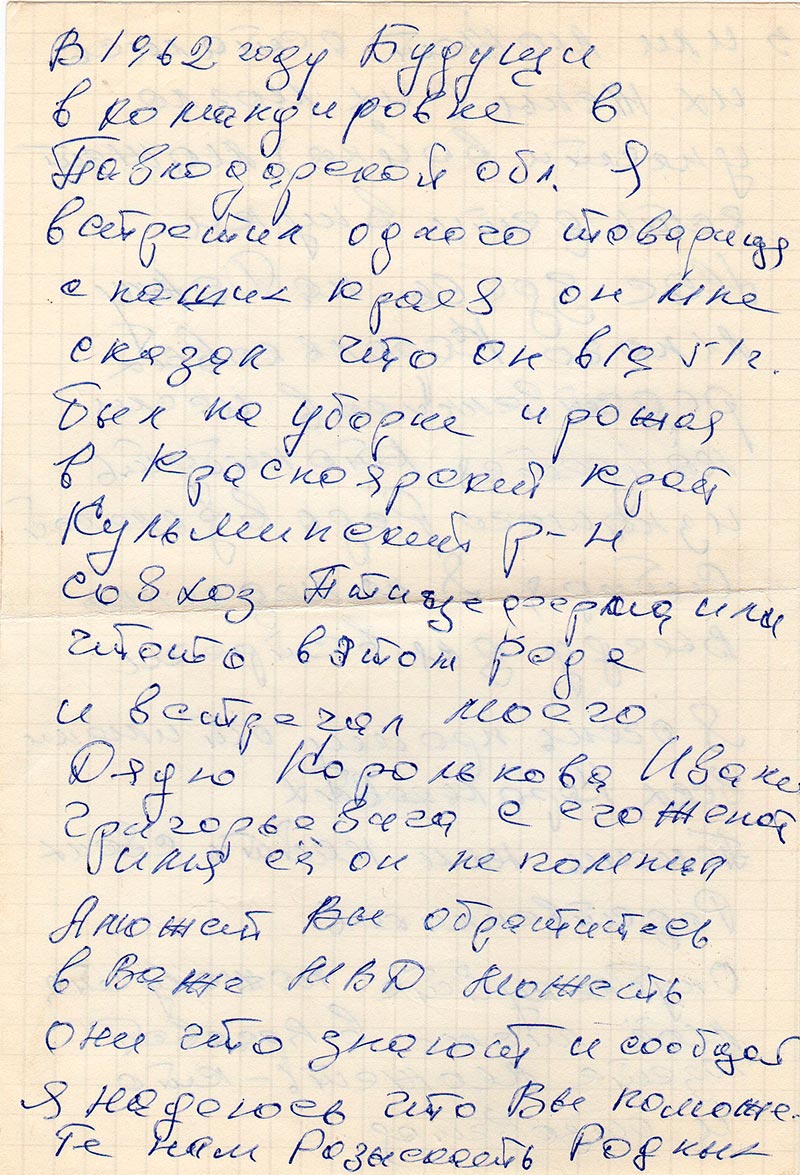 В 1962 году Будущи
в командировке в
Павлодарской обл. Я
встретил одного товарища
с наших краев он мне
сказал что он в 1951г.
был на уборке урожая
в Красноярский край
Кульминский р-н
совхоз Птицеферма или
чтото в этом роде
и встречал моего
Дядю Королькова Ивана
Григорьевича с его женой
имя её он не помнил
А может Вы обратитесь
в Ваше МВД можесть
они что знают и сообщат
я надеюсь что Вы поможе-
те нам Розыскать Родных